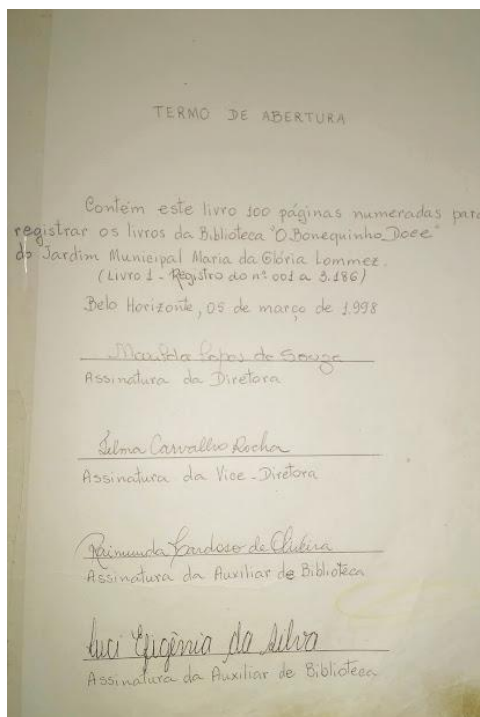 TERMO DE ABERTURA
Contém este livro 100 páginas numeradas para
registrar os livros da Biblioteca "O Bonequinho Doce"
do Jardim Municipal Maria da Glória Lommez.
(Livro 1 - Registro do nº 001 a 3.186)
Belo Horizonte, 05 de março de 1.998
Marilda Lopes de Souza
Assinatura da Diretora
Telma Carvalho Rocha
Assinatura da Vice-Diretora
Raimunda Cardoso de Oliveira
Assinatura da Auxiliar de Biblioteca
Luci Efigênia da Silva
Assinatura da Auxiliar de Biblioteca